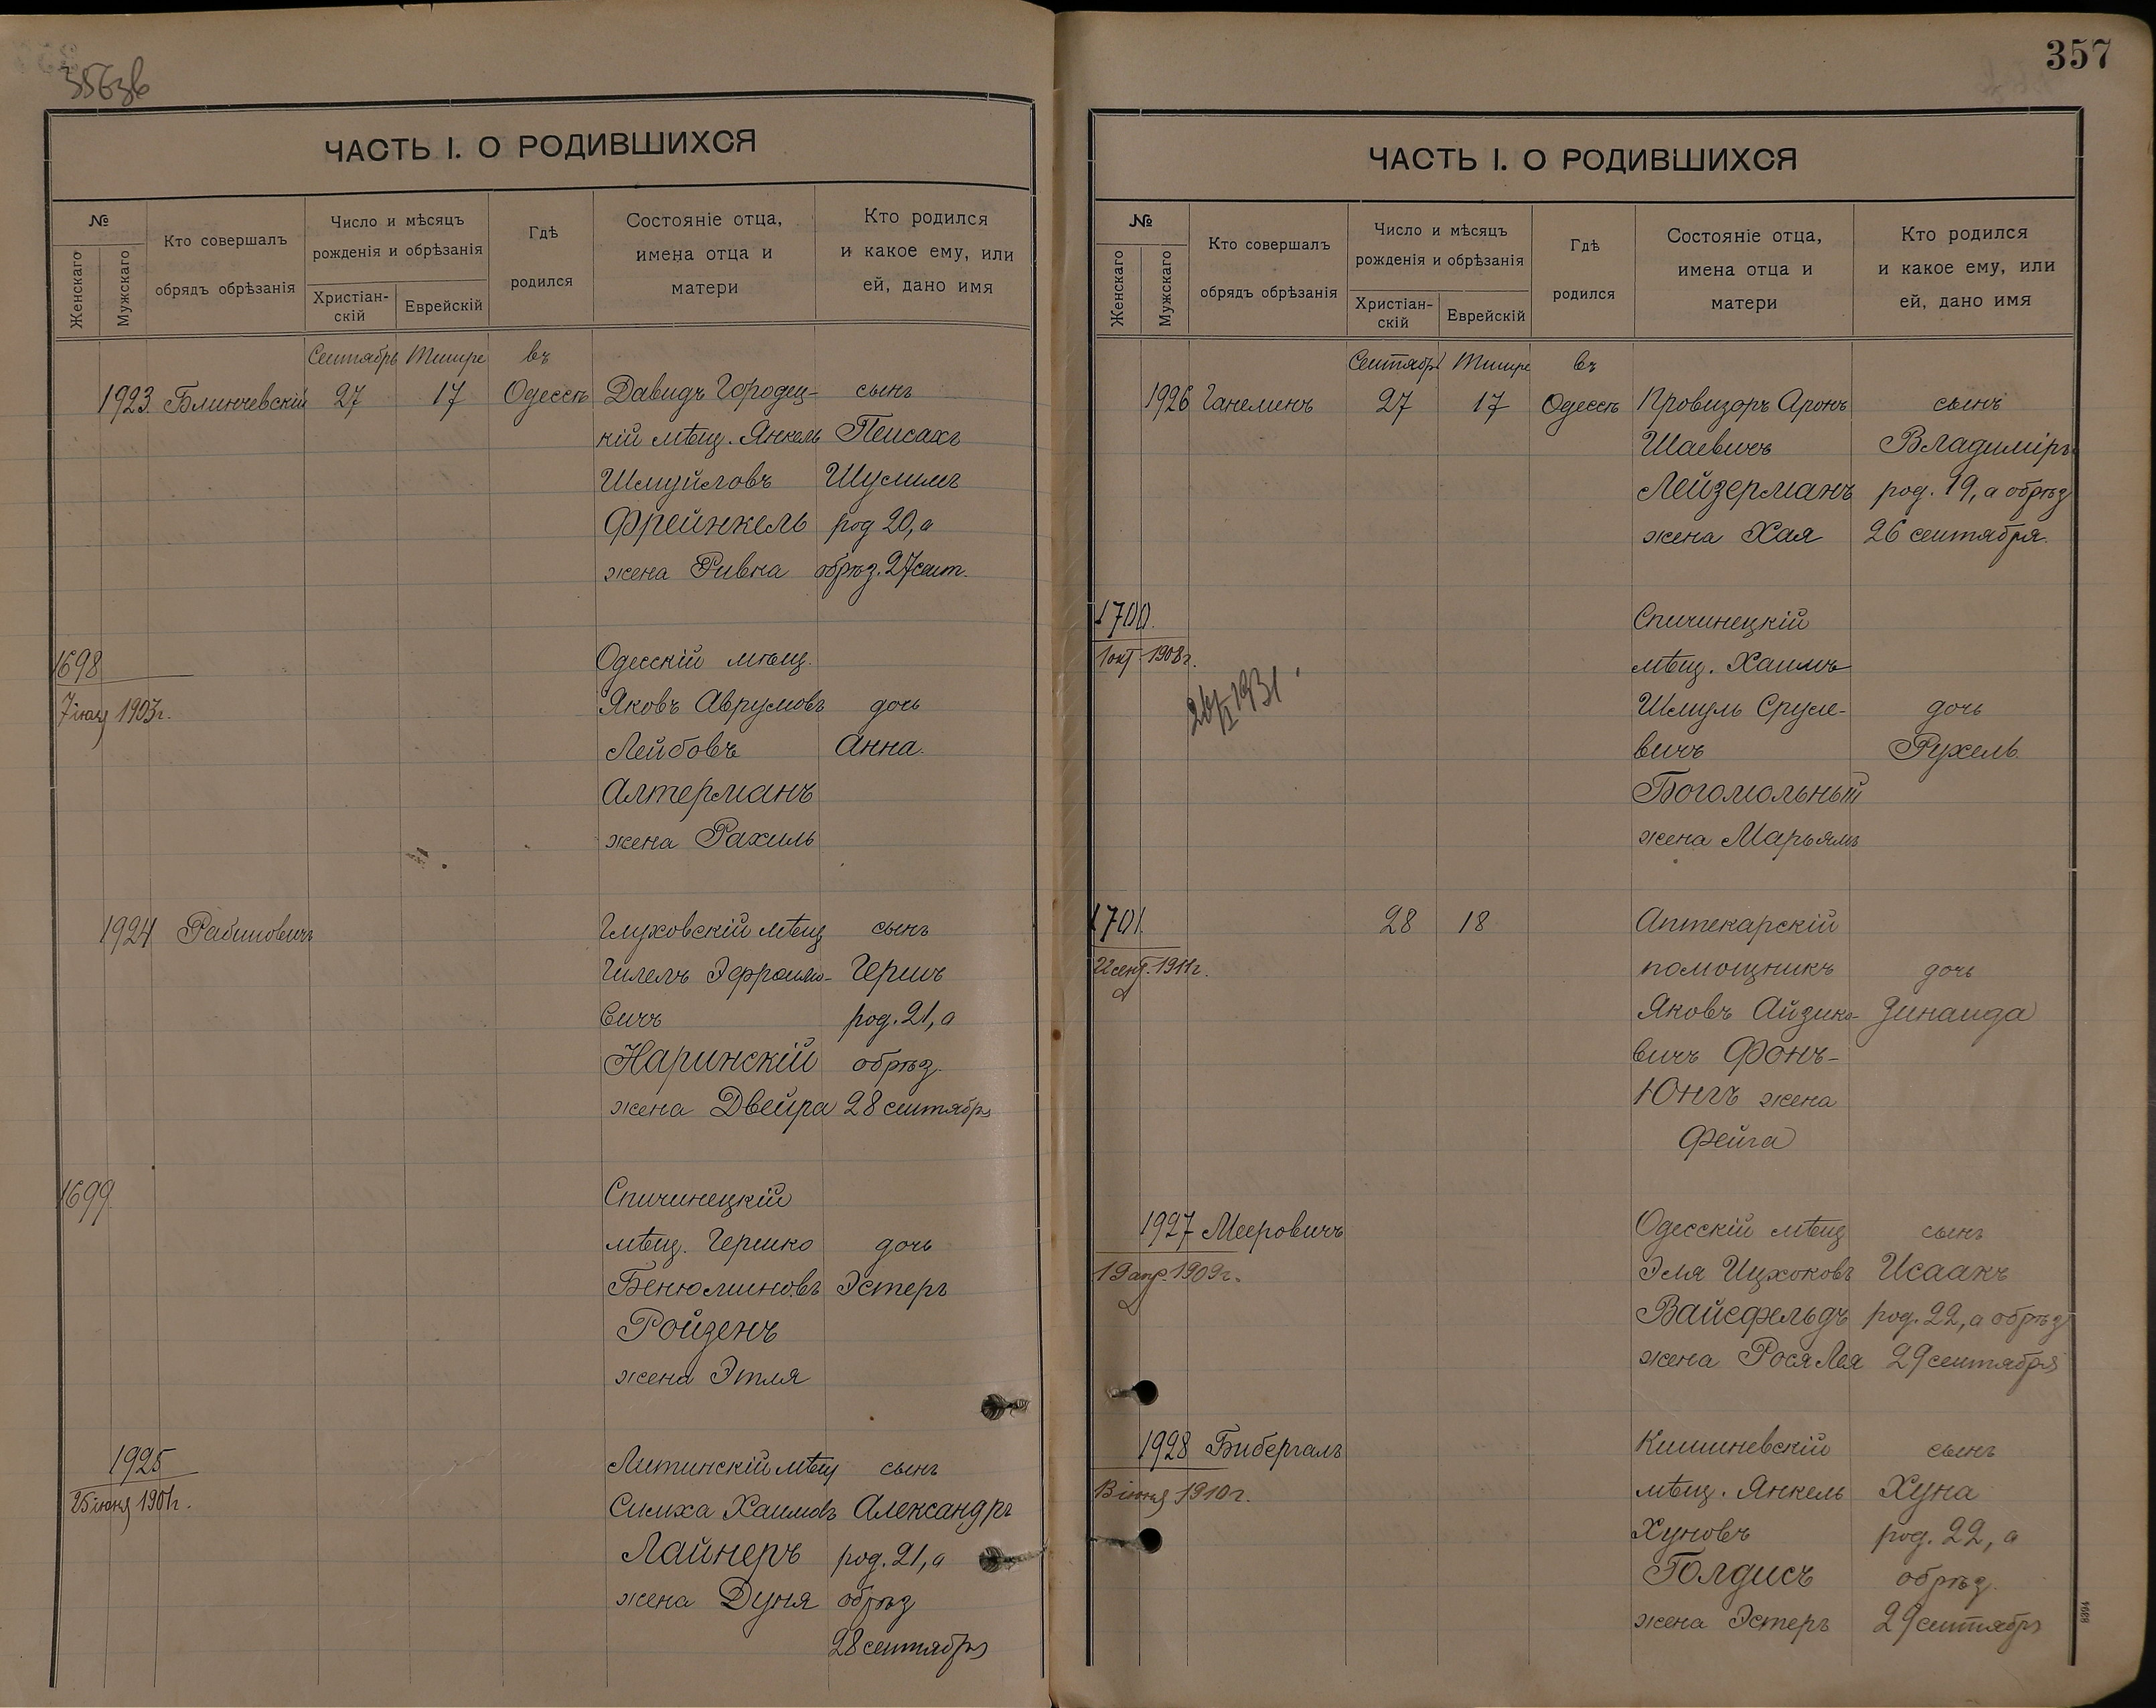 356зв
ЧАСТЬ I. О РОДИВШИХСЯ
№
Женскаго
Мужскаго
Кто совершалъ
обрядъ обрѣзанія
Число и мѣсяцъ
рожденія и обрѣзанія
Христіан-
скій
Еврейскій
Гдѣ
родился
Состояніе отца,
имена отца и
матери
Кто родился
и какое ему, или
ей, дано имя
Сентябрь Тишре въ
1923. Блинчевскій 27 17 Одессѣ Давидъ Городец- сынъ
кій мѣщ. Янкель Пейсахъ
Шмуйловъ Шулимъ
Фрейнкель род 20, а
жена Ривка обрѣз. 27 сент.
1698 Одесскій мѣщ.
7 іюля 1903г. Яковъ Аврумовъ дочь
Лейбовъ Анна.
Алтерманъ
жена Рахиль
1924 Рабиновичъ Глуховскій мѣщ сынъ
Гилель Эфроимо- Гершъ
вичъ род. 21, а
Наринскій обрѣз.
жена Двейра 28 сентября
1699. Спичинецкій
мѣщ. Гершко дочь
Бенюминовъ Эстеръ
Ройзенъ
жена Этля
1925 Литинскій мѣщ сынъ
25 іюня 1901г. Симха Хаимовъ Александръ
Лайнеръ род. 21, а
жена Дуня обрѣз
28 сентября
357
ЧАСТЬ I. О РОДИВШИХСЯ
№
Женскаго
Мужскаго
Кто совершалъ
обрядъ обрѣзанія
Число и мѣсяцъ
рожденія и обрѣзанія
Христіан-
скій
Еврейскій
Гдѣ
родился
Состояніе отца,
имена отца и
матери
Кто родился
и какое ему, или
ей, дано имя
Сентябрь Тишре въ
1926 Ганелинъ 27 17 Одессѣ Провизоръ Аронъ сынъ
Шаевичъ Владиміръ
Лейзерманъ род. 19, а обрѣз
жена Хая 26 сентября.
1700. Спичинецкій
1 окт. 1908г. мѣщ. Хаимъ
26/II 1931 Шмуль Сруле- дочь
вичъ Рухель.
Богомольный
жена Марьямъ
1701. 28 18 Аптекарскій
22 сент. 1911г. помощникъ дочь
Яковъ Айзико- Зинаида
вичъ Фонъ-
Юнгъ жена
Фейга
1927 Мееровичъ Одесскій мѣщ сынъ
19 апр. 1909г. Эля Ицхоковъ Исаакъ
Вайсфельдъ род. 22, а обрѣз
жена Рося Лея 29 сентября
1928 Бибергалъ Кишиневскій сынъ
13 іюня 1910г. мѣщ. Янкель Хуна
Хуновъ род. 22, а
Голдисъ обрѣз.
жена Эстеръ 29 сентября
8394